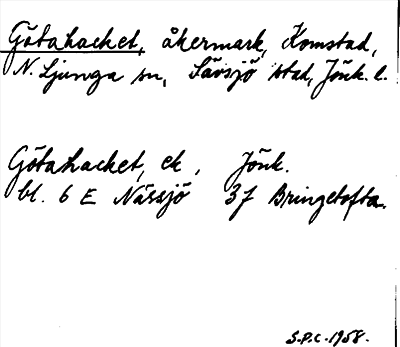 Götahacket, åkermark, Komstad,
N. Ljunga sn, Sävsjö stad, Jönk. l.
Götahacket, ek, Jönk.
bl. 6 E Nässjö 37 Bringetofta.
S.P.C. 1958.